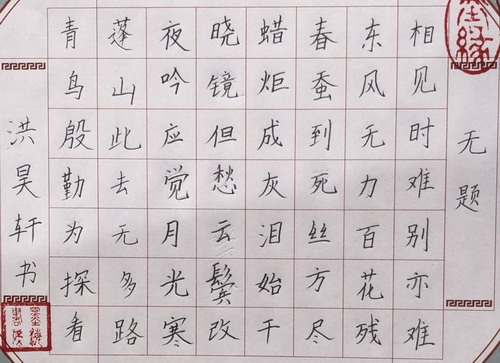 无题
相见时难别亦难
东风无力百花残
春蚕到死丝方尽
蜡炬成灰泪始干
晓镜但愁云鬓改
夜吟应觉月光寒
蓬山此去无多路
青鸟殷勤为探看
洪昊轩书